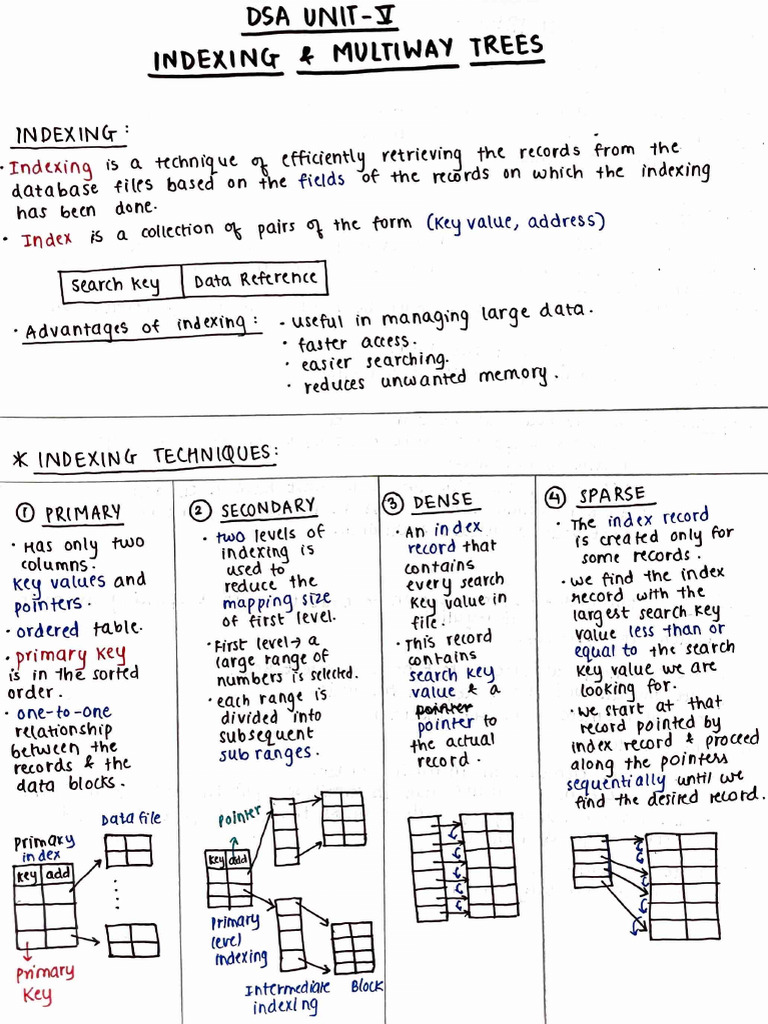 DSA UNIT-V
INDEXING & MULTIWAY TREES
INDEXING:
• Indexing is a technique of efficiently retrieving the records from the
database files based on the fields of the records on which the indexing
has been done.
• Index is a collection of pairs of the form (Key value, address)
Search Key | Data Reference
• Advantages of indexing: • useful in managing large data.
• faster access.
• easier searching.
• reduces unwanted memory.
* INDEXING TECHNIQUES:
① PRIMARY
• Has only two
columns.
Key values and
pointers.
• ordered table.
• primary key
is in the sorted
order.
• one-to-one
relationship
between the
records & the
data blocks.
Data file
Primary
index
Key add
Primary
Key
② SECONDARY
• two levels of
indexing is
used to
reduce the
mapping size
of first level.
• First level → a
large range of
numbers is selected.
• each range is
divided into
subsequent
sub ranges.
pointer
Key add
Primary
level
indexing
Intermediate
indexing
Block
③ DENSE
• An index
record that
contains
every search
key value in
file.
• This record
contains
search key
value & a
pointer
pointer to
the actual
record.
④ SPARSE
• The index record
is created only for
some records.
• we find the index
record with the
largest search key
value less than or
equal to the search
key value we are
looking for.
• we start at that
record pointed by
index record & proceed
along the pointers
sequentially until we
find the desired record.